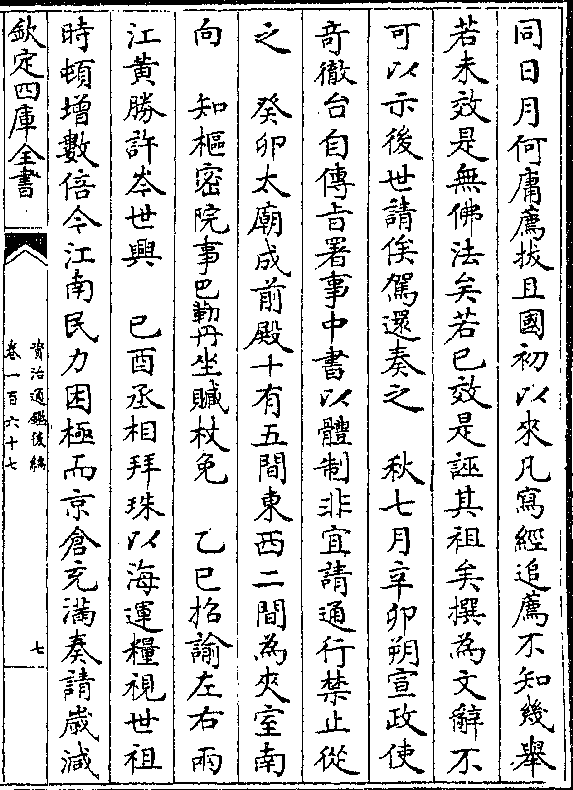 同日月何庸薦拔且國初以來凡寫經追薦不知幾舉
若未效是無佛法矣若已效是誣其祖矣撰為文辭不
可以示後世請俟駕還奏之　秋七月辛卯朔宣政使
竒徹台自傳旨署事中書以體制非宜請通行禁止從
之　癸卯太廟成前殿十有五間東西二間為夾室南
向　知樞密院事巴勒丹坐贓杖免　乙巳招諭左右兩
江黃勝許岑世興　已酉丞相拜珠以海運糧視世祖
時頓增數倍今江南民力困極而京倉充滿奏請歲減
欽定四庫全書
資治通鑑後編
卷一百六十七
七